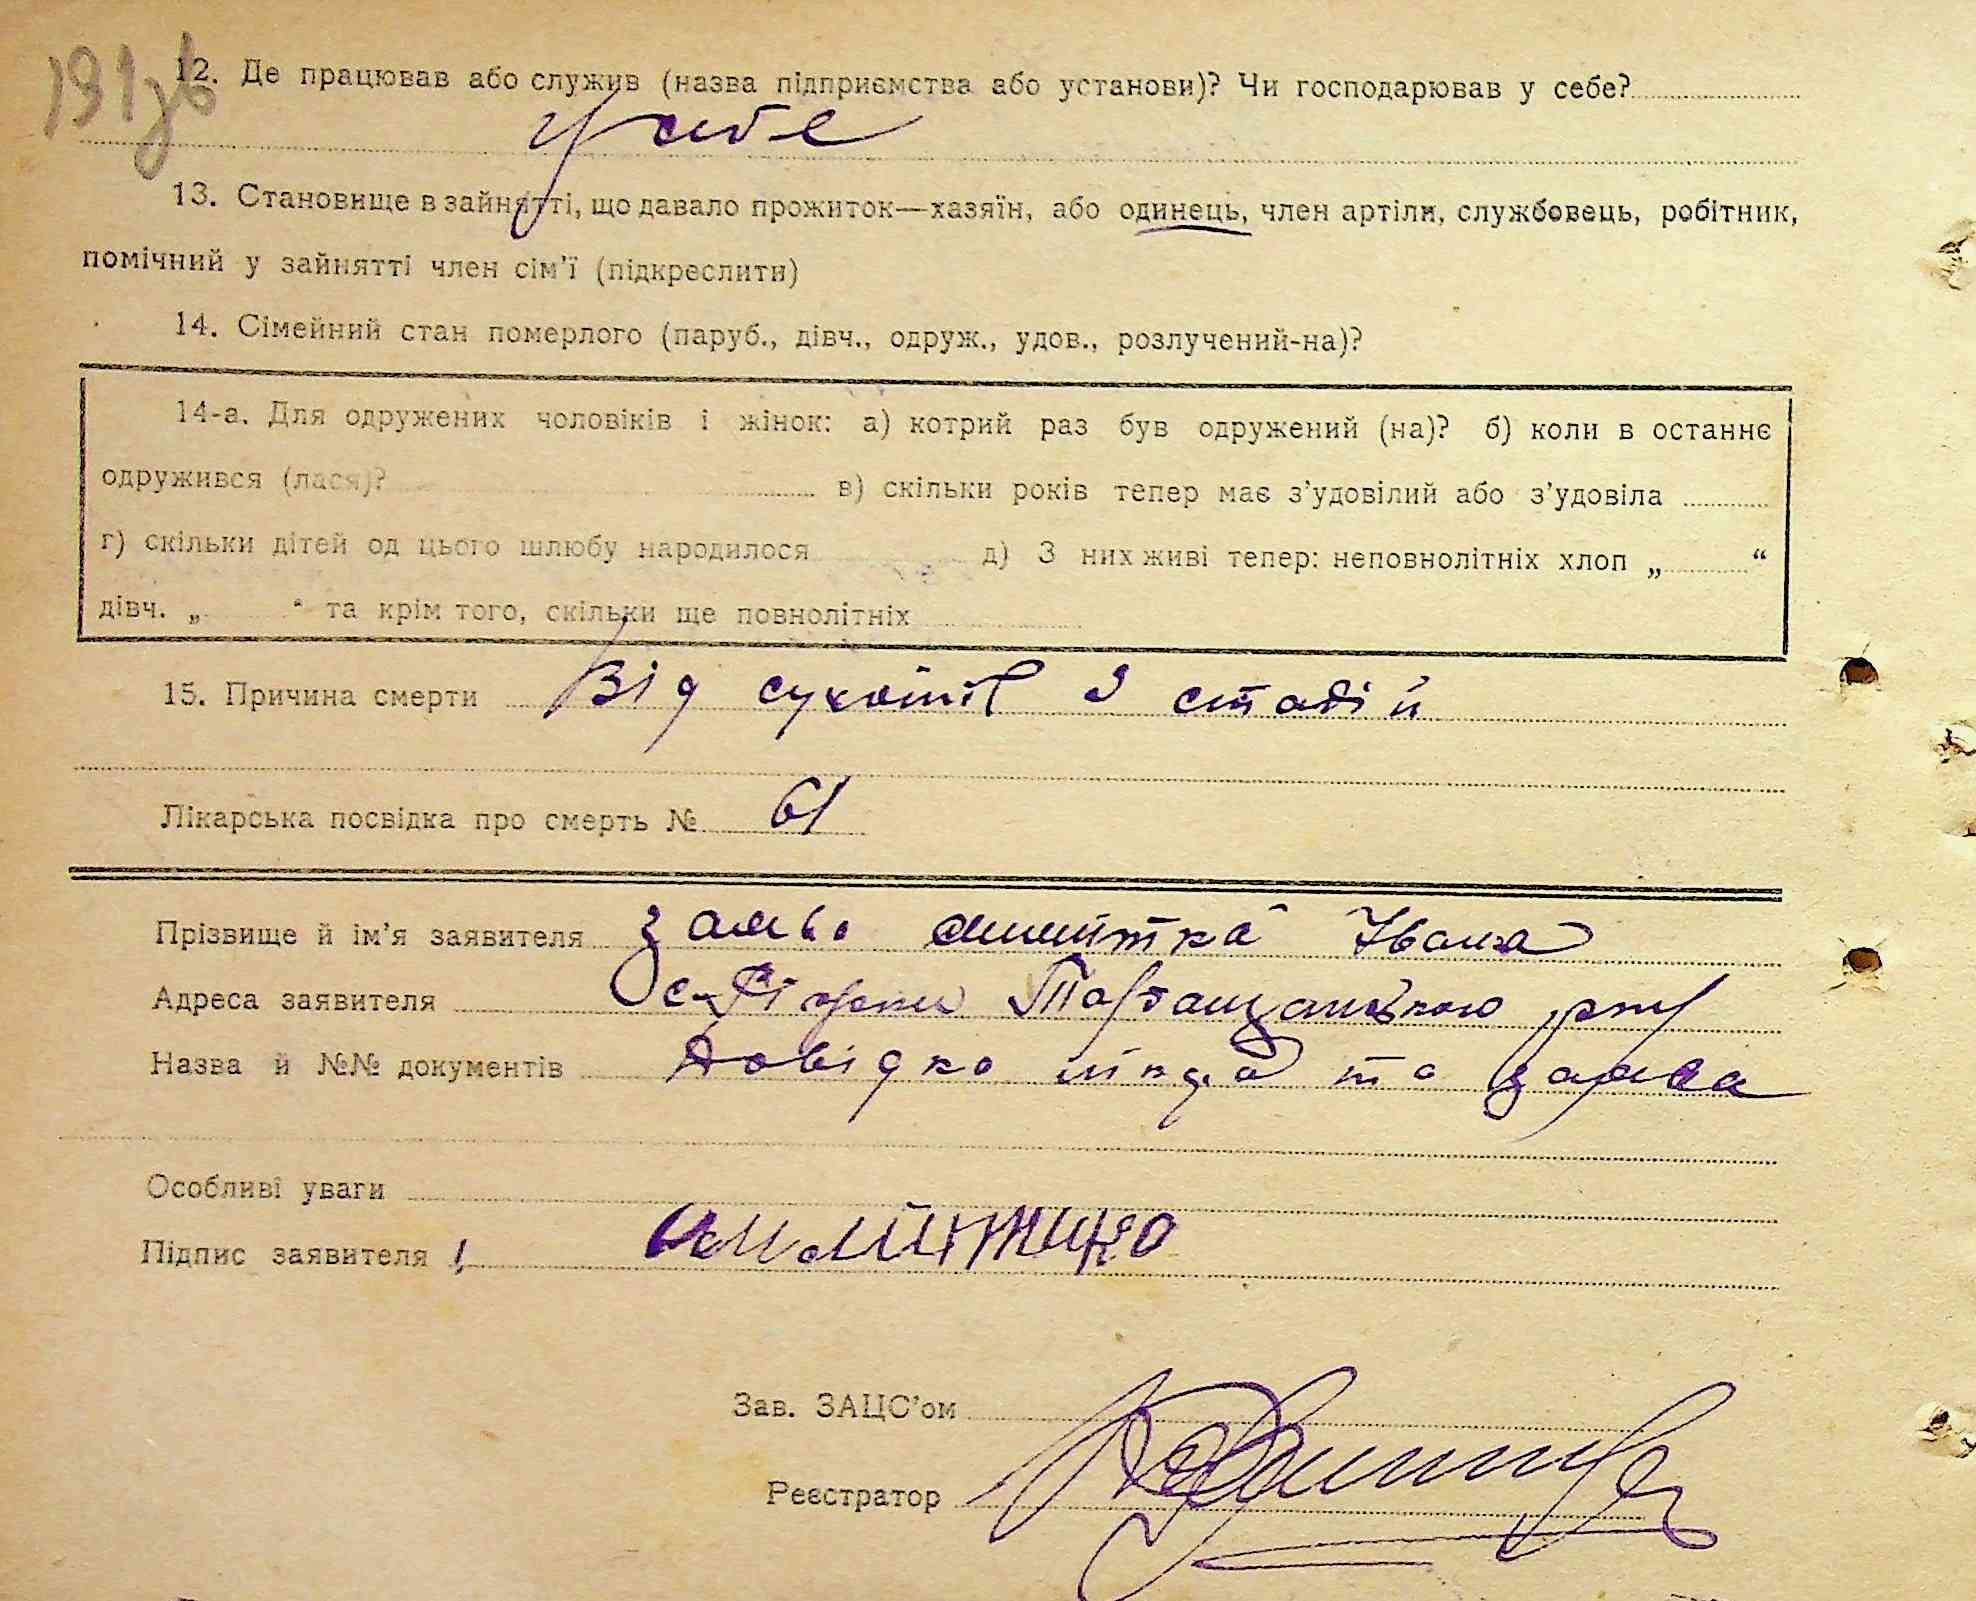 191зв
12. Де працював або служив (назва підприємства або установи)? Чи господарював у себе?
у себе
13. Становище в зайнятті, що давало прожиток—хазяїн, або одинець, член артіли, службовець, робітник,
помічний у зайнятті член сім'ї (підкреслити)
14. Сімейний стан померлого (паруб., дівч., одруж., удов., розлучений-на)?
14-а. Для одружених чоловіків і жінок: а) котрий раз був одружений (на)? б) коли в останнє
одружився (лася)? в) скільки років тепер має з'удовілий або з'удовіла
г) скільки дітей од цього шлюбу народилося д) З них живі тепер: неповнолітніх хлоп „ “
дівч. „ “ та крім того, скільки ще повнолітніх
15. Причина смерти Від сухотів 3 стадій
Лікарська посвідка про смерть № 61
Прізвище й ім'я заявителя Івана
Адреса заявителя с. Таращанського р-ну
Назва й №№ документів Довідка та
Особливі уваги
Підпис заявителя
Зав. ЗАЦС'ом
Реєстратор